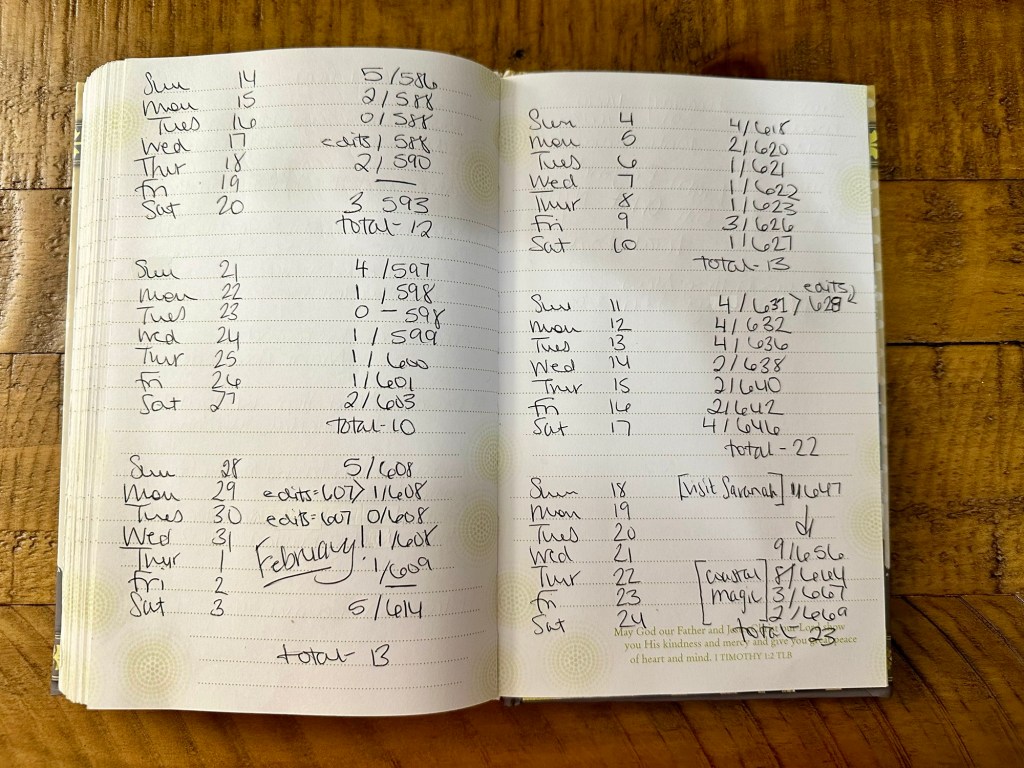 Sun 14 5/586
Mon 15 2/588
Tues 16 0/588
Wed 17 edits/588
Thur 18 2/590
Fri 19 —
Sat 20 3 593
total-12
Sun 21 4/597
Mon 22 1/598
Tues 23 0-598
Wed 24 1/599
Thur 25 1/600
Fri 26 1/601
Sat 27 2/603
total-10
Sun 28 5/608
Mon 29 edits=607> 1/608
Tues 30 edits=607 0/608
Wed 31 1/608
Thur 1 February! 1/609
Fri 2 —
Sat 3 5/614
total- 13
Sun 4 4/618
Mon 5 2/620
Tues 6 1/621
Wed 7 1/622
Thur 8 1/623
Fri 9 3/626
Sat 10 1/627
total-13
edits
Sun 11 4/631> 628
Mon 12 4/632
Tues 13 4/636
Wed 14 2/638
Thur 15 2/640
Fri 16 2/642
Sat 17 4/646
total-22
Sun 18 [visit Savanah] 1/647
Mon 19 ↓
Tues 20
Wed 21 9/656
Thur 22 [coastal 8/664
Fri 23 magic] 3/667
Sat 24 2/669
total- 23
May God our Father and Jesus Christ our Lord show
you His kindness and mercy and give you great peace
of heart and mind. 1 TIMOTHY 1:2 TLB